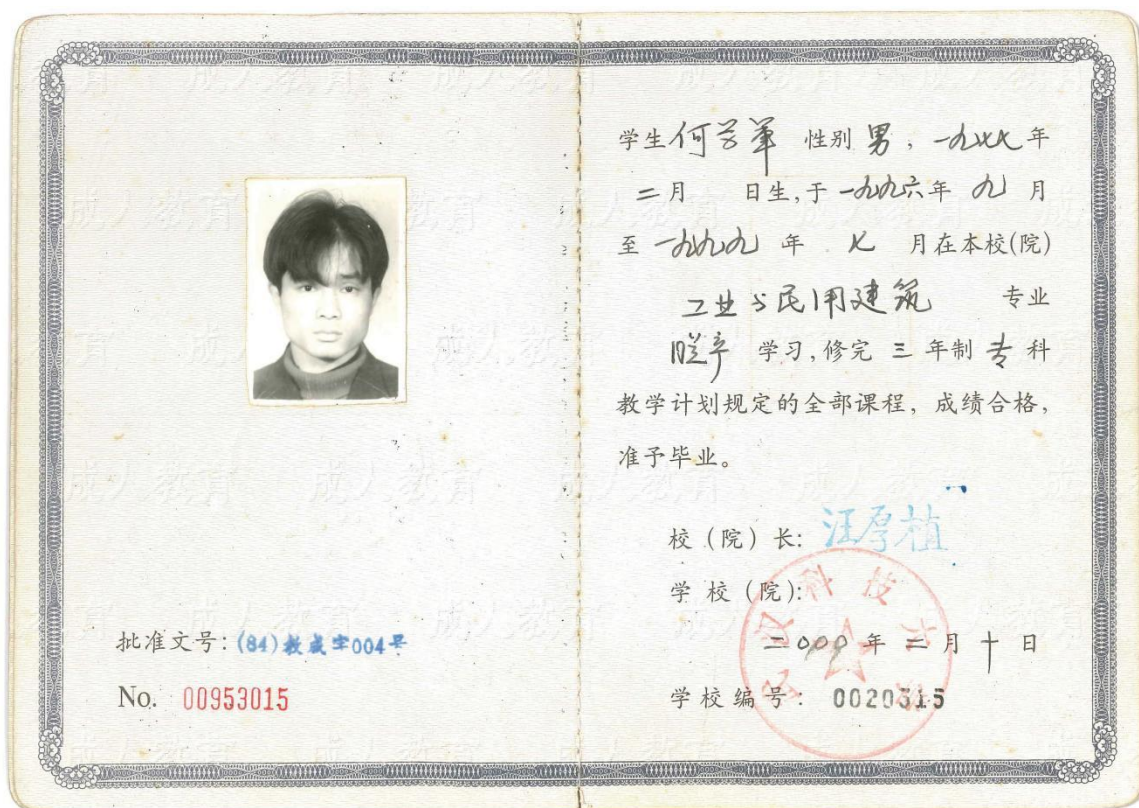 批准文号:(84)教成字004号
No. 00953015
学生何学军 性别男,一九七七年
二月 日生,于一九九六年 九 月
至一九九九 年 七 月在本校(院)
工业与民用建筑 专业
脱产 学习,修完 三 年制 专 科
教学计划规定的全部课程,成绩合格,
准予毕业。
校(院)长: 汪厚植
学校(院):
武汉科技大学
年 二 月 十 日
学校编号: 0020315
成人教育